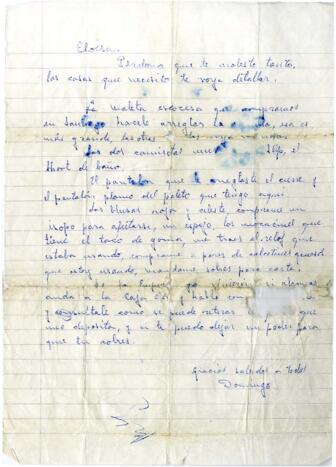 Eloisa.
Perdona que te moleste tanto,
las cosas que necesito te voy a detallar.
La maleta escocesa que compramos
en Santiago hacele arreglar la esa es
más grande, las otras
Las dos camisetas slip, el
short de baño.
El pantalon que le arreglaste el cierre y
el pantalón plomo del paleto que tengo aquí
Las blusas roja y celeste, comprame un
jisopo para afeitarse, un espejo, los mocacines que
tiene el taco de goma, me traes el reloj que
estaba usando, comprame 2 pares de calcetines
que estoy usando, mandame sobres para carta.
si alcanzas
anda a la Caja y habla con
y consultale como se puede retirar que
me deposito, y si te puedo dejar un poder para
que tu cobres.
Gracias saludos a todos
Domingo